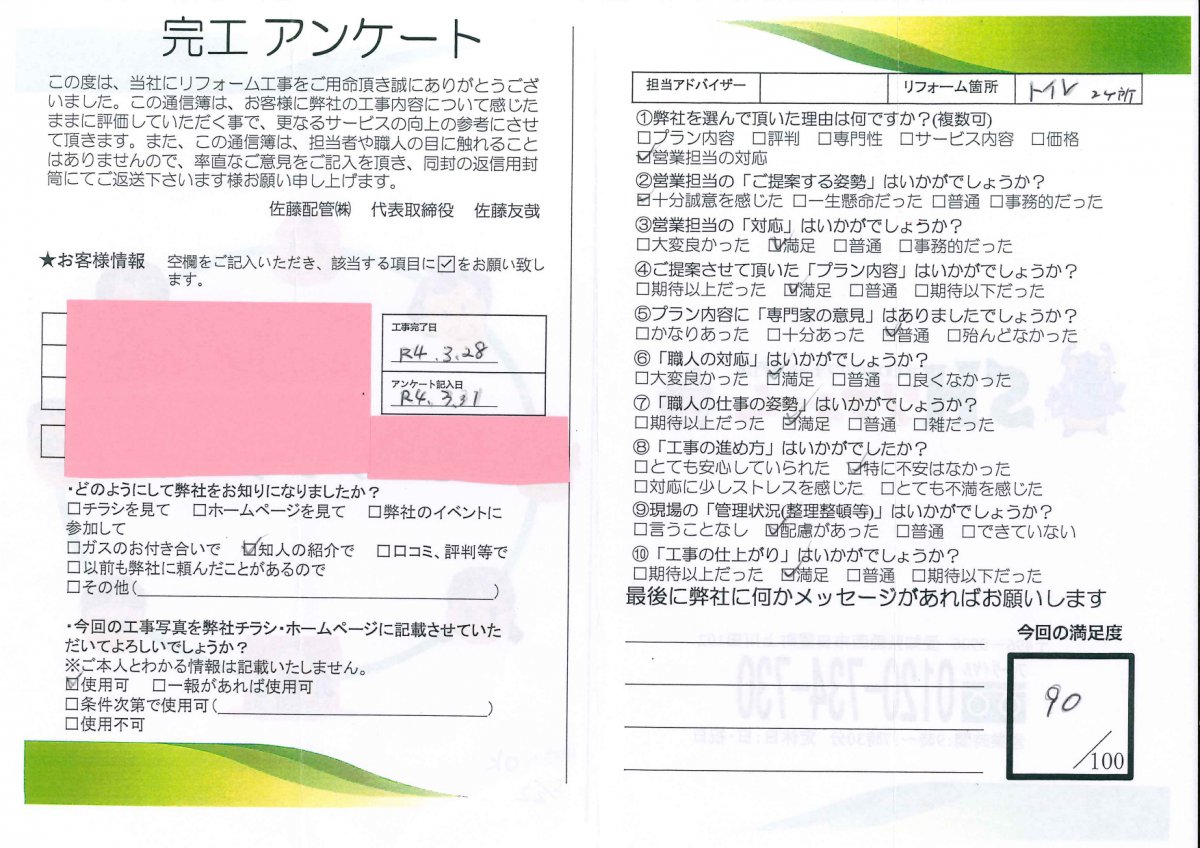 完工 アンケート
この度は、当社にリフォーム工事をご用命頂き誠にありがとうござ
いました。この通信簿は、お客様に弊社の工事内容について感じた
ままに評価していただく事で、更なるサービスの向上の参考にさせ
て頂きます。また、この通信簿は、担当者や職人の目に触れること
はありませんので、率直なご意見をご記入を頂き、同封の返信用封
筒にてご返送下さいます様お願い申し上げます。
佐藤配管㈱ 代表取締役 佐藤友哉
★お客様情報 空欄をご記入いただき、該当する項目に☑をお願い致し
ます。
工事完了日
R4.3.28
アンケート記入日
R4.3.31
・どのようにして弊社をお知りになりましたか？
□チラシを見て □ホームページを見て □弊社のイベントに
参加して
□ガスのお付き合いで ☑知人の紹介で □口コミ、評判等で
□以前も弊社に頼んだことがあるので
□その他( )
・今回の工事写真を弊社チラシ・ホームページに記載させていた
だいてよろしいでしょうか？
※ご本人とわかる情報は記載いたしません。
☑使用可 □一報があれば使用可
□条件次第で使用可( )
□使用不可
担当アドバイザー リフォーム箇所 トイレ 2ヶ所
①弊社を選んで頂いた理由は何ですか？(複数可)
□プラン内容 □評判 □専門性 □サービス内容 □価格
☑営業担当の対応
②営業担当の「ご提案する姿勢」はいかがでしょうか？
☑十分誠意を感じた □一生懸命だった □普通 □事務的だった
③営業担当の「対応」はいかがでしょうか？
□大変良かった ☑満足 □普通 □事務的だった
④ご提案させて頂いた「プラン内容」はいかがでしょうか？
□期待以上だった ☑満足 □普通 □期待以下だった
⑤プラン内容に「専門家の意見」はありましたでしょうか？
□かなりあった □十分あった ☑普通 □殆んどなかった
⑥「職人の対応」はいかがでしょうか？
□大変良かった ☑満足 □普通 □良くなかった
⑦「職人の仕事の姿勢」はいかがでしょうか？
□期待以上だった ☑満足 □普通 □雑だった
⑧「工事の進め方」はいかがでしたか？
□とても安心していられた ☑特に不安はなかった
□対応に少しストレスを感じた □とても不満を感じた
⑨現場の「管理状況(整理整頓等)」はいかがでしょうか？
□言うことなし ☑配慮があった □普通 □できていない
⑩「工事の仕上がり」はいかがでしょうか？
□期待以上だった ☑満足 □普通 □期待以下だった
最後に弊社に何かメッセージがあればお願いします
今回の満足度
90
/100